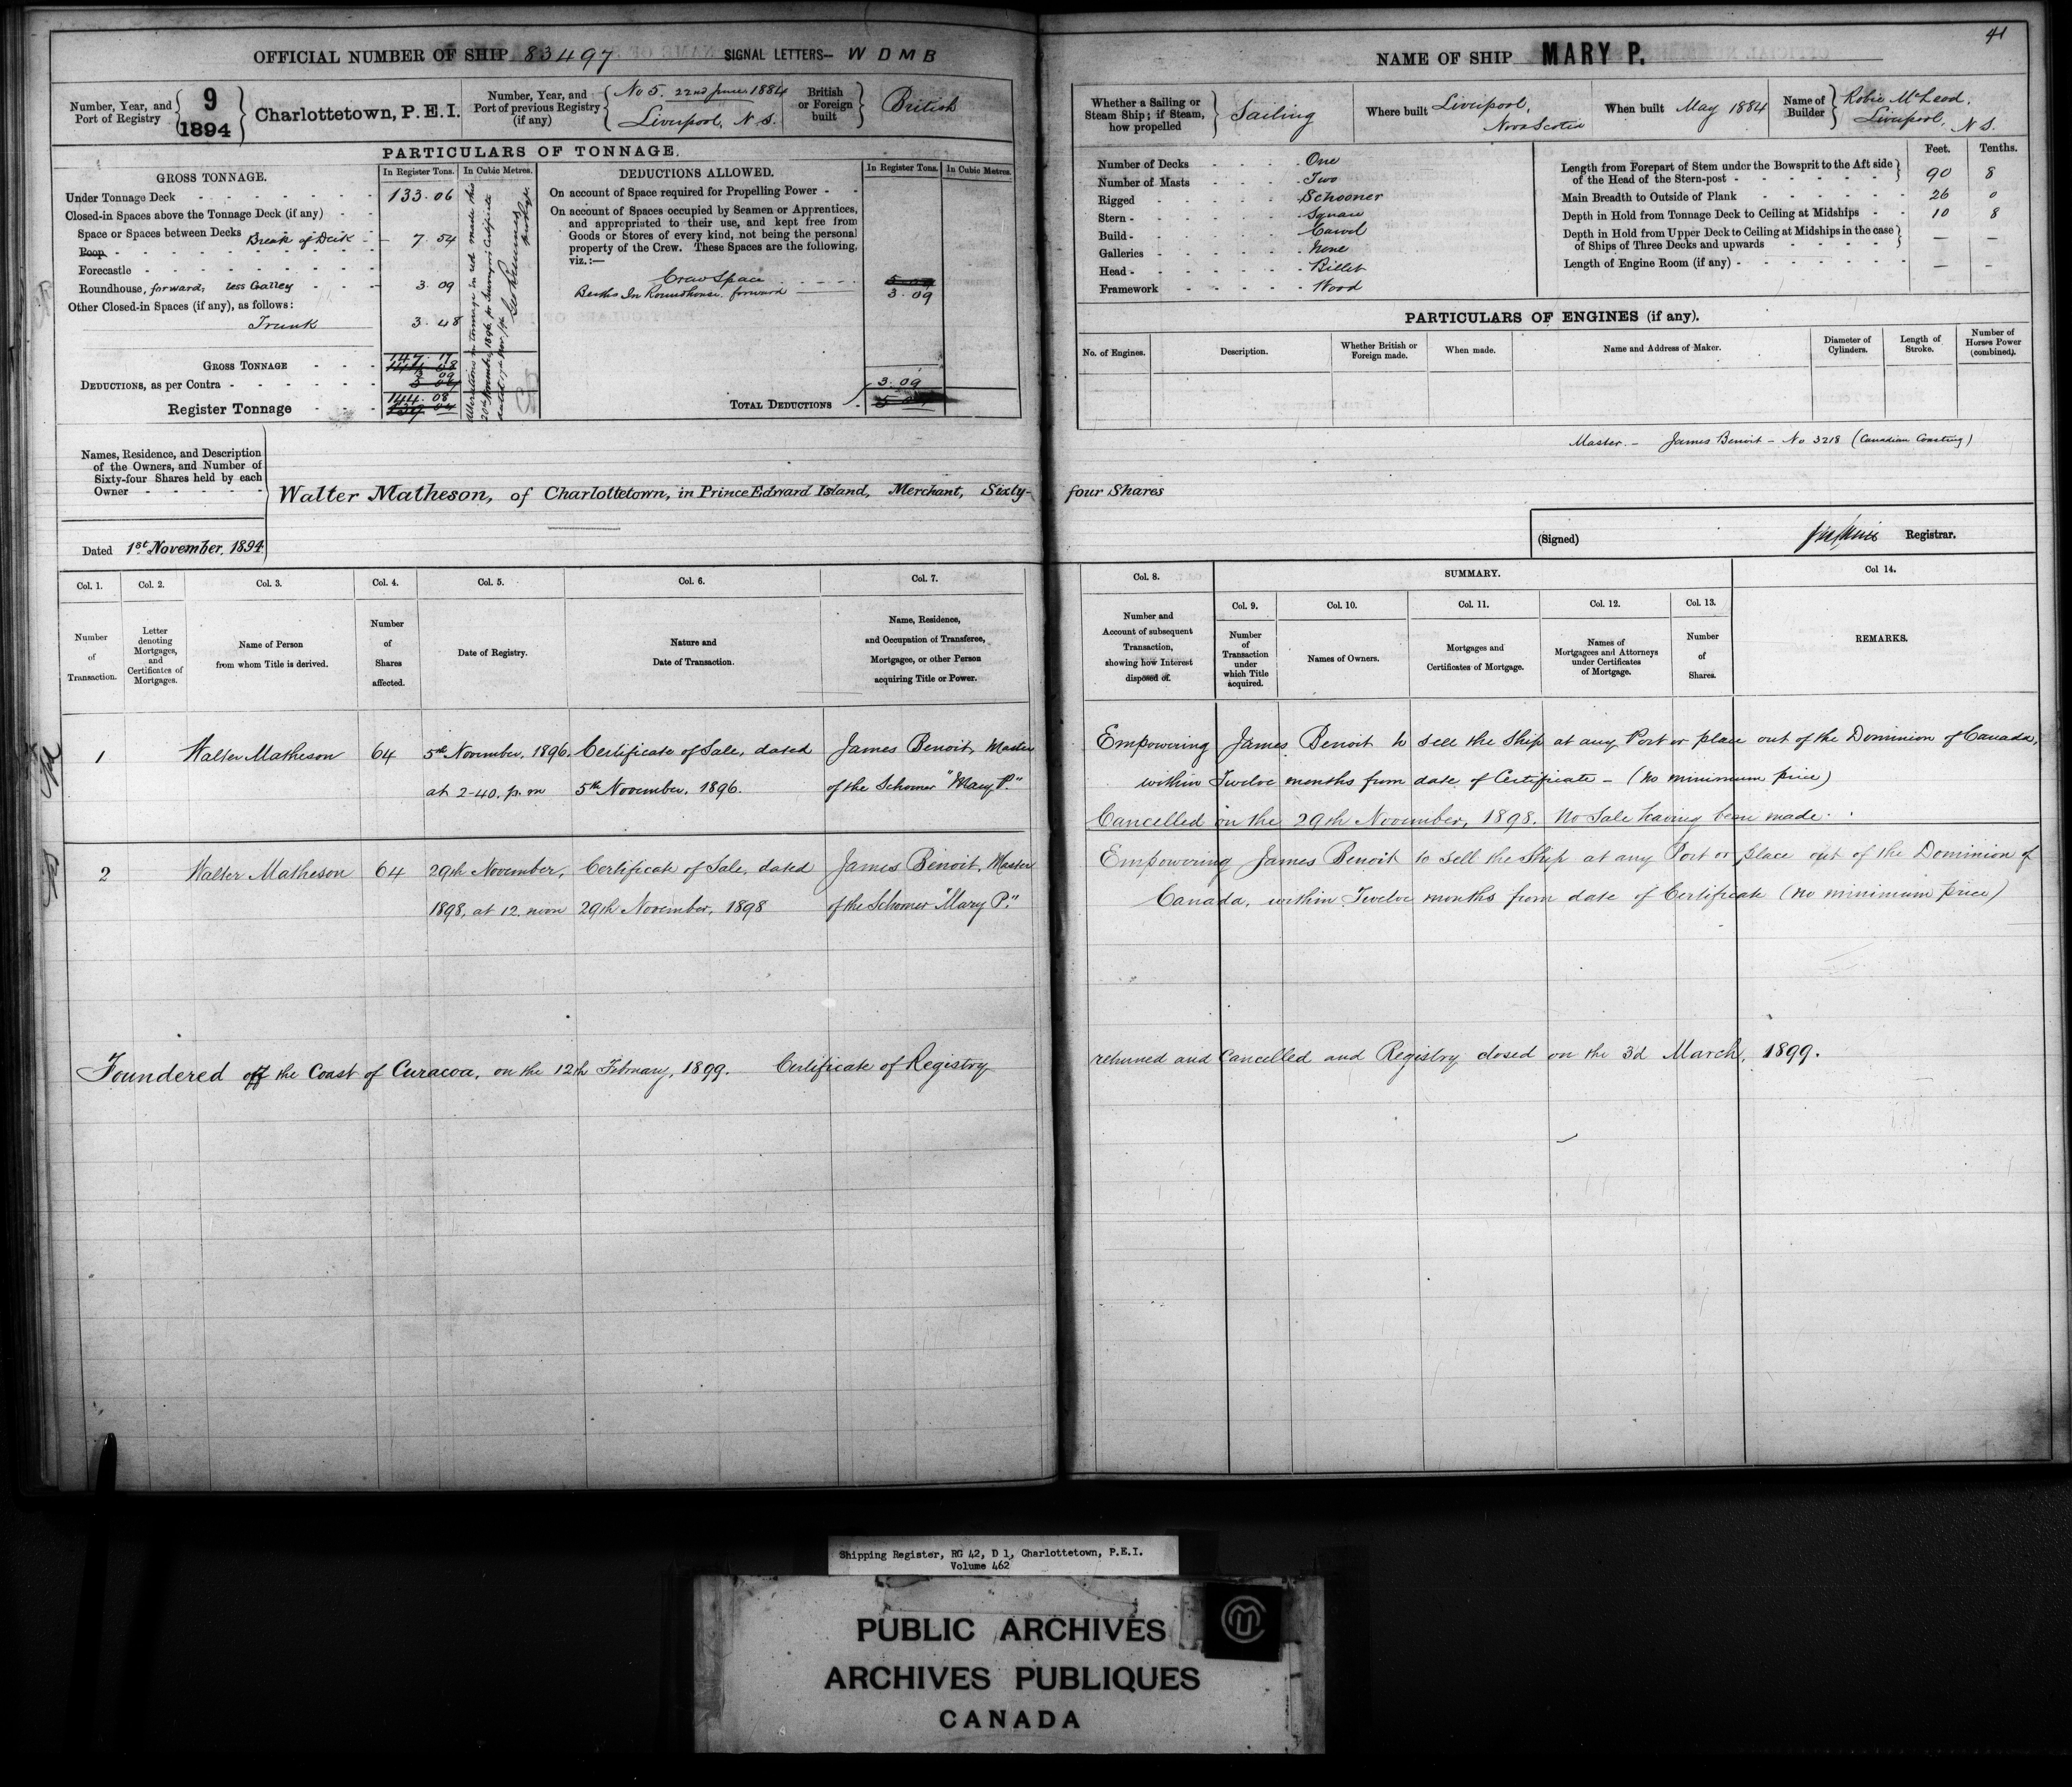 41
OFFICIAL NUMBER OF SHIP 83497 SIGNAL LETTERS— W D M B
NAME OF SHIP MARY P.
Number, Year, and Port of Registry 9 1894 Charlottetown, P.E.I.
Number, Year, and Port of previous Registry (if any) No 5. 22nd June 1884 Liverpool, N S.
British or Foreign built British
Whether a Sailing or Steam Ship; if Steam, how propelled Sailing
Where built Liverpool, Nova Scotia
When built May 1884
Name of Builder Robie McLeod, Liverpool, N S.
PARTICULARS OF TONNAGE.
GROSS TONNAGE. In Register Tons. In Cubic Metres.
Under Tonnage Deck 133.06
Closed-in Spaces above the Tonnage Deck (if any)
Space or Spaces between Decks Break of Deck 7.54
Poop
Forecastle
Roundhouse, forward, less Galley 3.09
Other Closed-in Spaces (if any), as follows:
Trunk 3.48
GROSS TONNAGE 147.17
DEDUCTIONS, as per Contra 3 09
Register Tonnage 144.08
Alterations in tonnage in red made this
20th November, 1896, per Surveyor's Certificate
dated 17th Nov /96
DEDUCTIONS ALLOWED. In Register Tons. In Cubic Metres.
On account of Space required for Propelling Power
On account of Spaces occupied by Seamen or Apprentices,
and appropriated to their use, and kept free from
Goods or Stores of every kind, not being the personal
property of the Crew. These Spaces are the following,
viz.:—
Crew Space
Berths In Roundhouse forward 3.09
TOTAL DEDUCTIONS 3.09
Number of Decks One
Number of Masts Two
Rigged Schooner
Stern Square
Build Carvel
Galleries None
Head Billet
Framework Wood
Feet. Tenths.
Length from Forepart of Stem under the Bowsprit to the Aft side
of the Head of the Stern-post 90 8
Main Breadth to Outside of Plank 26 0
Depth in Hold from Tonnage Deck to Ceiling at Midships 10 8
Depth in Hold from Upper Deck to Ceiling at Midships in the case
of Ships of Three Decks and upwards — —
Length of Engine Room (if any) — —
PARTICULARS OF ENGINES (if any).
No. of Engines. Description. Whether British or Foreign made. When made. Name and Address of Maker. Diameter of Cylinders. Length of Stroke. Number of Horses Power (combined).
Master. — James Benoit — No 3218 (Canadian Coasting)
Names, Residence, and Description
of the Owners, and Number of
Sixty-four Shares held by each
Owner
Walter Matheson, of Charlottetown, in Prince Edward Island, Merchant, Sixty-four Shares
Dated 1st November, 1894.
(Signed) Registrar.
Col. 1. Col. 2. Col. 3. Col. 4. Col. 5. Col. 6. Col. 7. Col. 8. SUMMARY. Col 14.
Col. 9. Col. 10. Col. 11. Col. 12. Col. 13.
Number of Transaction.
Letter denoting Mortgages, and Certificates of Mortgages.
Name of Person from whom Title is derived.
Number of Shares affected.
Date of Registry.
Nature and Date of Transaction.
Name, Residence, and Occupation of Transferee, Mortgagee, or other Person acquiring Title or Power.
Number and Account of subsequent Transaction, showing how Interest disposed of.
Number of Transaction under which Title acquired.
Names of Owners.
Mortgages and Certificates of Mortgage.
Names of Mortgagees and Attorneys under Certificates of Mortgage.
Number of Shares.
REMARKS.
1 Walter Matheson 64 5th November, 1896, Certificate of Sale, dated James Benoit, Master
at 2-40. p.m 5th November, 1896. of the Schooner "Mary P."
Empowering James Benoit to sell the Ship at any Port or place out of the Dominion of Canada,
within Twelve months from date of Certificate — (no minimum price)
Cancelled on the 29th November, 1898. No Sale having been made.
2 Walter Matheson 64 29th November, Certificate of Sale, dated James Benoit, Master
1898, at 12 noon 29th November, 1898 of the Schooner "Mary P."
Empowering James Benoit to sell the Ship at any Port or place out of the Dominion of
Canada, within Twelve months from date of Certificate (no minimum price)
Foundered off the Coast of Curacoa, on the 12th February, 1899. Certificate of Registry returned and Cancelled and Registry closed on the 3d March, 1899.
Shipping Register, RG 42, D 1, Charlottetown, P.E.I.
Volume 462
PUBLIC ARCHIVES
ARCHIVES PUBLIQUES
CANADA